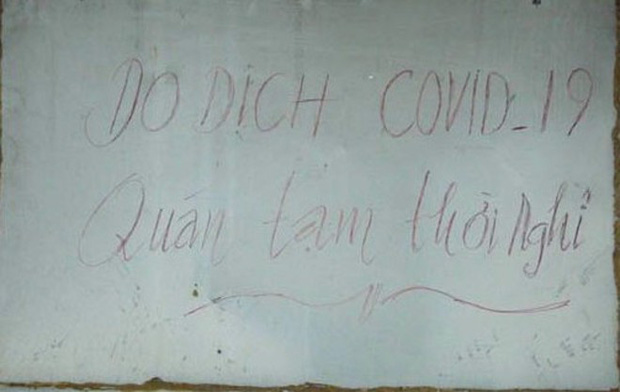 DO DỊCH COVID-19
Quán tạm thời nghỉ